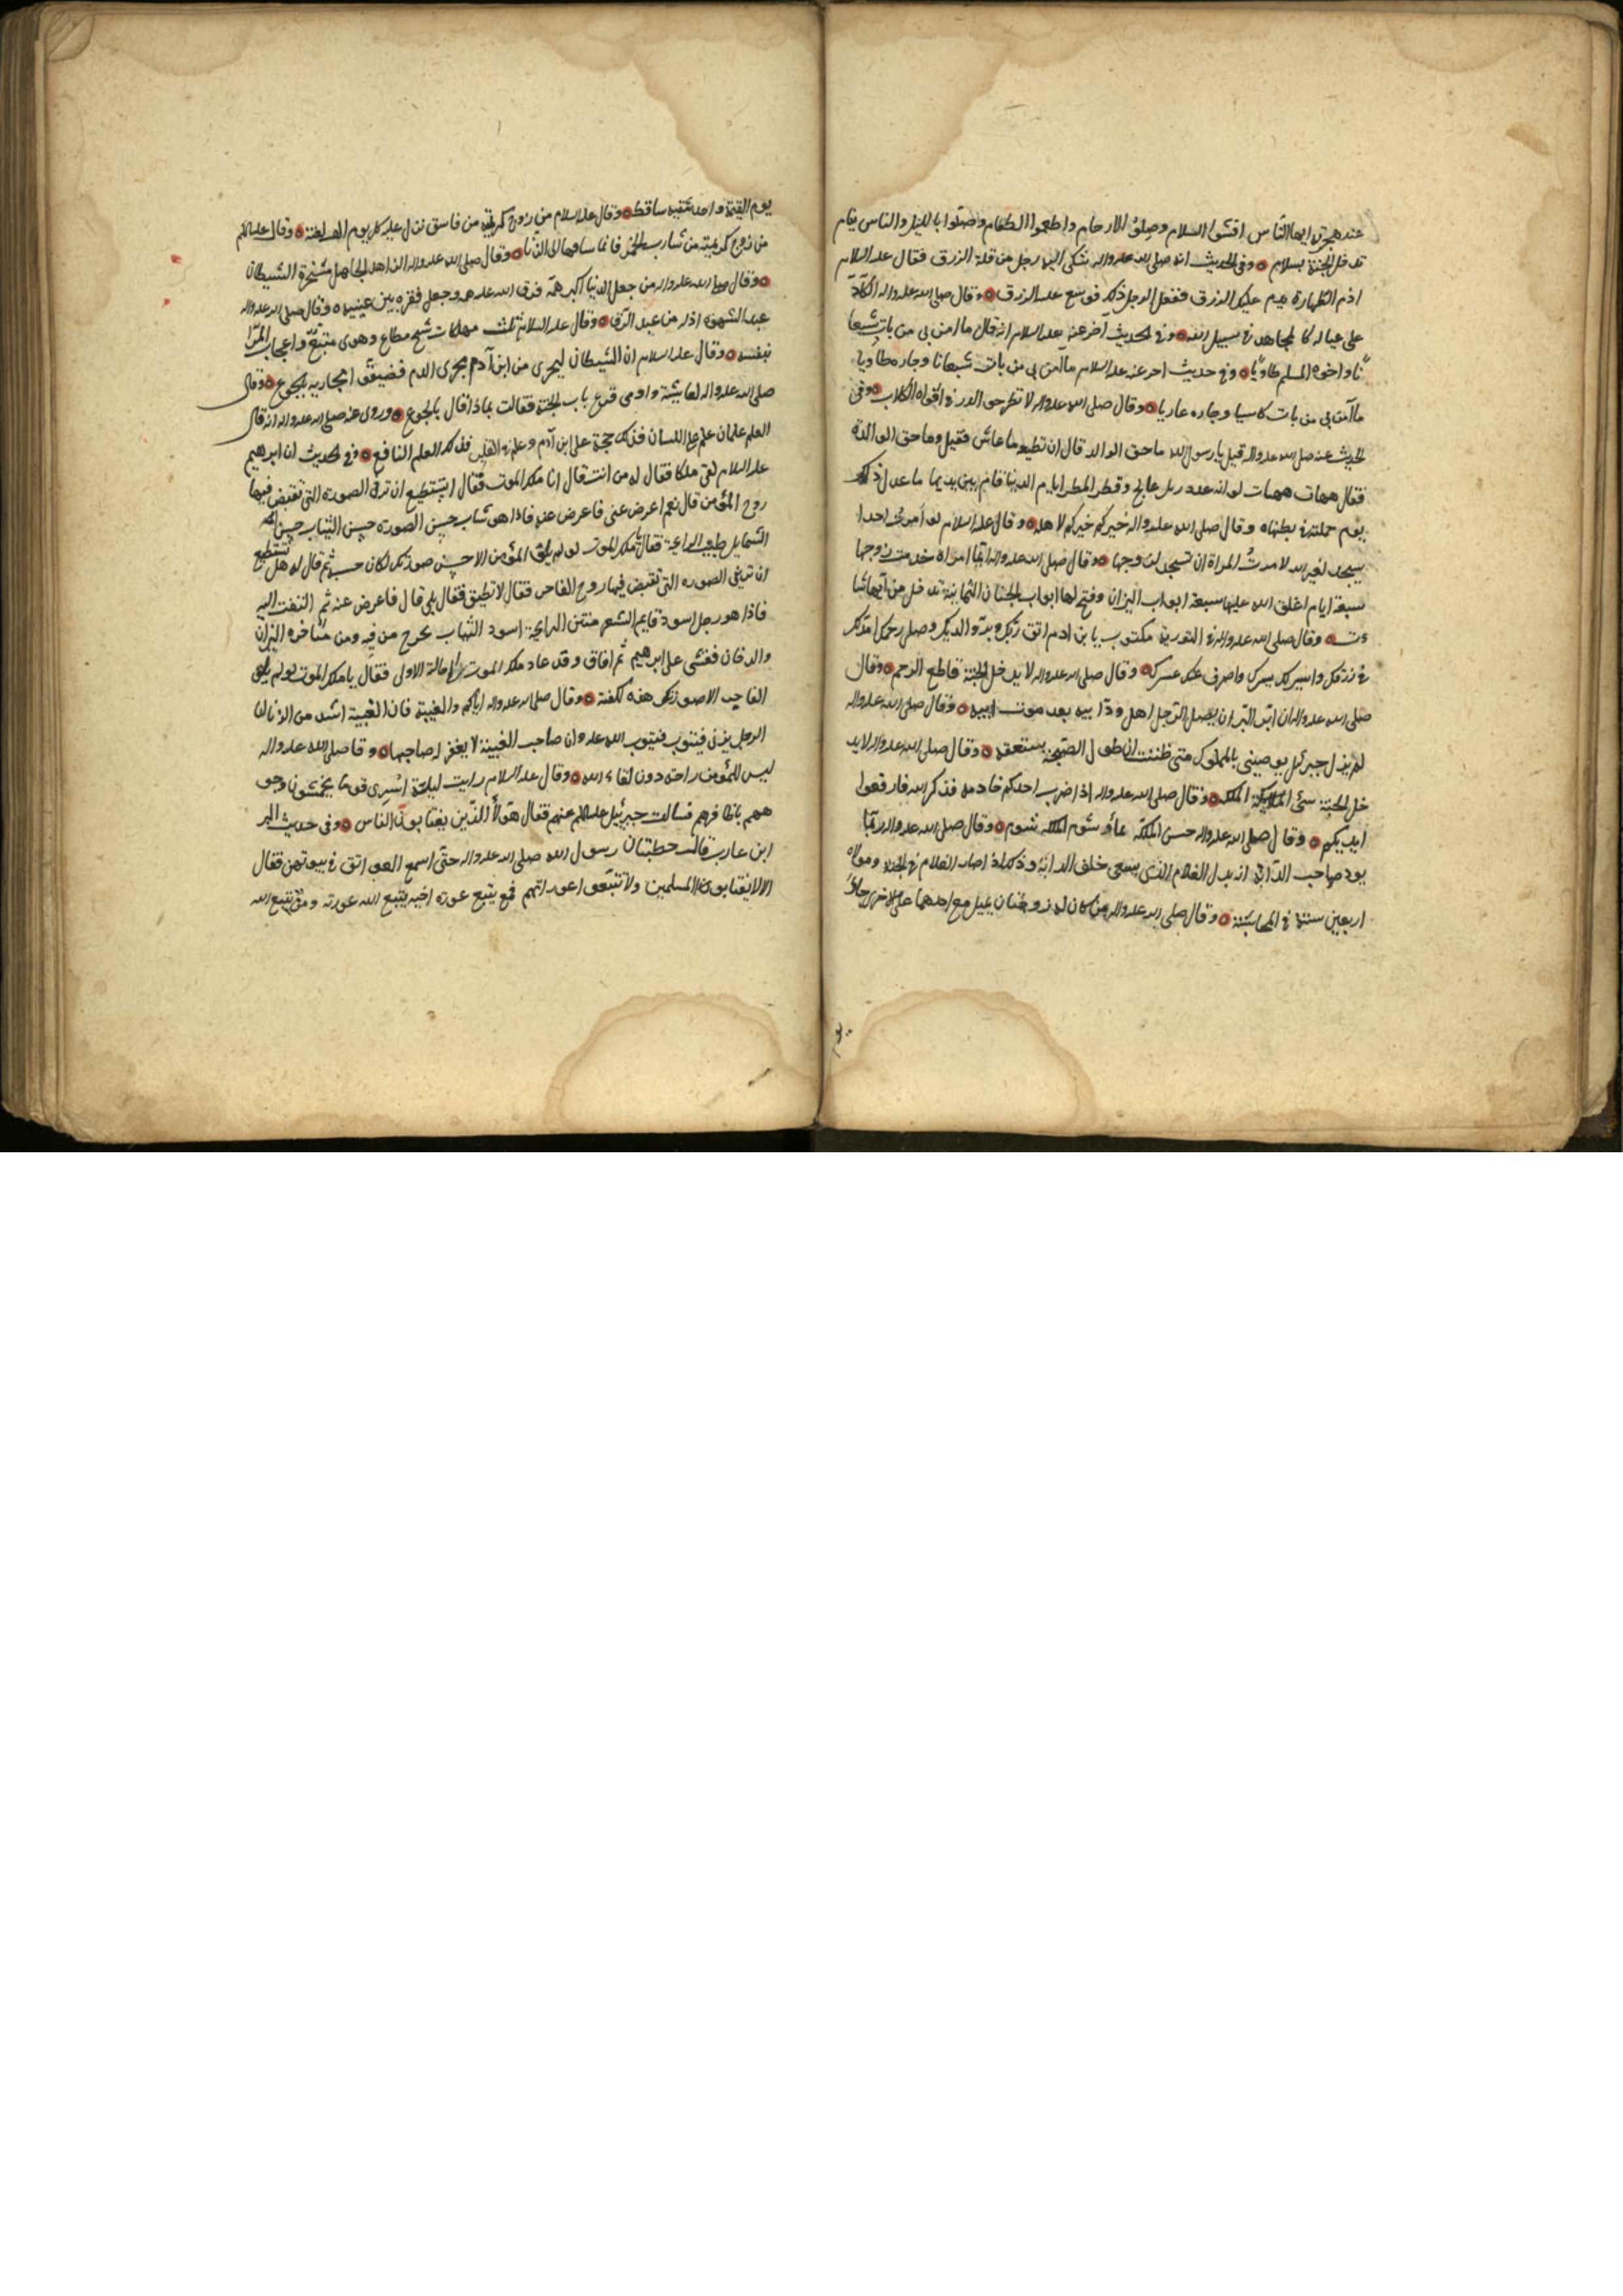 عند هجرته ايها الناس افشوا السلام وصلوا الارحام واطعموا الطعام وصلوا بالليل والناس نيام
تدخل الجنة بسلام وفى الحديث انه صلى الله عليه واله شكى اليه رجل من قلة الرزق فقال عليه السلام
ادم الطهارة يدم عليك الرزق ففعل الرجل ذلك فوسع عليه الرزق وقال صلى الله عليه واله الكادّ
على عياله كالمجاهد فى سبيل الله وفى الحديث آخر عنه عليه السلام انه قال ما امن بى من بات شبعا
نا واخوه المسلم طاويا وفى حديث اخر عنه عليه السلام ما آمن بى من بات شبعانا وجاره طاويا
ما آمن بى من بات كاسيا وجاره عاريا وقال صلى الله عليه واله لا تطرحوا الدر فى افواه الكلاب وفى
الحديث عنه صلى الله عليه واله قيل يا رسول الله ما حق الوالد قال ان تطيعه ما عاش فقيل وما حق الوالدة
فقال هيهات هيهات لو انه عدد رمل عالج وقطر المطر ايام الدنيا قام بين يديها ما عدل ذلك
يوم حملته فى بطنها وقال صلى الله عليه واله خيركم خيركم لاهله وقال عليه السلام لو امرت احدا
يسجد لغير الله لامرتُ المراة ان تسجد لزوجها وقال صلى الله عليه واله ايما امراة خدمت زوجها
سبعة ايام اغلق الله عليها سبعة ابواب النيران وفتح لها ابواب الجنان الثمانية تدخل من ايها شا
ءت وقال صلى الله عليه واله فى التورية مكتوب يا بن ادم اتق ربك وبرّ والديك وصل رحمك امدّ لك
فى رزقك وايسر لك يسرك واصرف عنك عسرك وقال صلى الله عليه واله لا يدخل الجنة قاطع الرحم وقال
صلى الله عليه واله ان ابرّ البرّ ان يصل الرجل اهل ودّ ابيه بعد موت ابيه وقال صلى الله عليه واله
لم يزل جبرئيل يوصينى بالمملوك متى ظننت ان طول الصحبة يستعقه وقال صلى الله عليه واله لا يد
خل الجنة سئ الملكة وقال صلى الله عليه واله اذا ضرب احدكم خادمه فذكر الله فارفعوا
ايديكم وقال صلى الله عليه واله حسن الملكة نماؤ وسوء الملكة شوم وقال صلى الله عليه واله ربما
يود صاحب الدابة انه بدل الغلام الذى يسعى خلف الدابة وذلك اذا صار الغلام فى الجنة ومولاه
اربعين سنة فى المحاسبة وقال صلى الله عليه واله من كان له زوجتان يميل مع احدهما على الاخرى جاؤ
يوم القيمة واحد شقيه ساقط وقال عليه السلام من زوج كريمته من فاسق نزل عليه كل يوم الف لعنة وقال عليه السلم
من زوج كريمته من شارب الخمر فانما ساقها الى الزنا وقال صلى الله عليه واله الزاهد الجاهل مسخرة الشيطان
وقال صلى الله عليه واله من جعل الدنيا اكبر همّه فرق الله عليه همه وجعل فقره بين عينيه وقال صلى الله عليه واله
عبد الشهوة اذل من عبد الرق وقال عليه السلام ثلث مهلكات شح مطاع وهوى متبع واعجاب المرأ
بنفسه وقال عليه السلام ان الشيطان ليجرى من ابن آدم مجرى الدم فضيّقوا مجاريه بالجوع وقال
صلى الله عليه واله لعايشة داومى قرع باب الجنة فقالت بماذا قال بالجوع وروى عنه صلى الله عليه واله انه قال
العلم علمان علم على اللسان فذلك حجة على ابن آدم وعلم فى القلب فذلك العلم النافع وفى الحديث ان ابرهيم
عليه السلام لقى ملكا فقال له من انت قال انا ملك الموت فقال اتستطيع ان ترينى الصورة التى تقبض فيها
روح المؤمن قال نعم اعرض عنى فاعرض عنه فاذا هو شاب حسن الصورة حسن الثياب حسن
الشمايل طيب الرايحة فقال يا ملك الموت لو لم يلق المؤمن الا حسن صورتك لكان حسبه ثم قال له هل تستطيع
ان ترينى الصورة التى تقبض فيها روح الفاجر فقال لا تطيق فقال بلى قال فاعرض عنه ثم التفت اليه
فاذا هو رجل اسود قايم الشعر منتن الرايحة اسود الثياب يخرج من فيه ومن مناخره النيران
والدخان فغشى على ابرهيم ثم افاق وقد عاد ملك الموت الى حالة الاولى فقال يا ملك الموت لو لم يلق
الفاجر الا صورتك هذه لكفته وقال صلى الله عليه واله اياكم والغيبة فان الغيبة اشد من الزنا لان
الرجل يزنى فيتوب فيتوب الله عليه وان صاحب الغيبة لا يغفر له صاحبها وقال صلى الله عليه واله
ليس للمؤمن راحة دون لقاء الله وقال عليه السلام رايت ليلة اسرى قوما يخمشون وجو
ههم باظافرهم فسالت جبرئيل عليه السلم عنهم فقال هؤلأ الذين يغتابون الناس وفى حديث البر
ابن عازب قالت خطبنا رسول الله صلى الله عليه واله حتى اسمع العواتق فى بيوتهن فقال
الا لا يغتابون المسلمين ولا تتبعوا عوراتهم فمن يتبع عورة اخيه يتبع الله عورته ومن يتبع الله